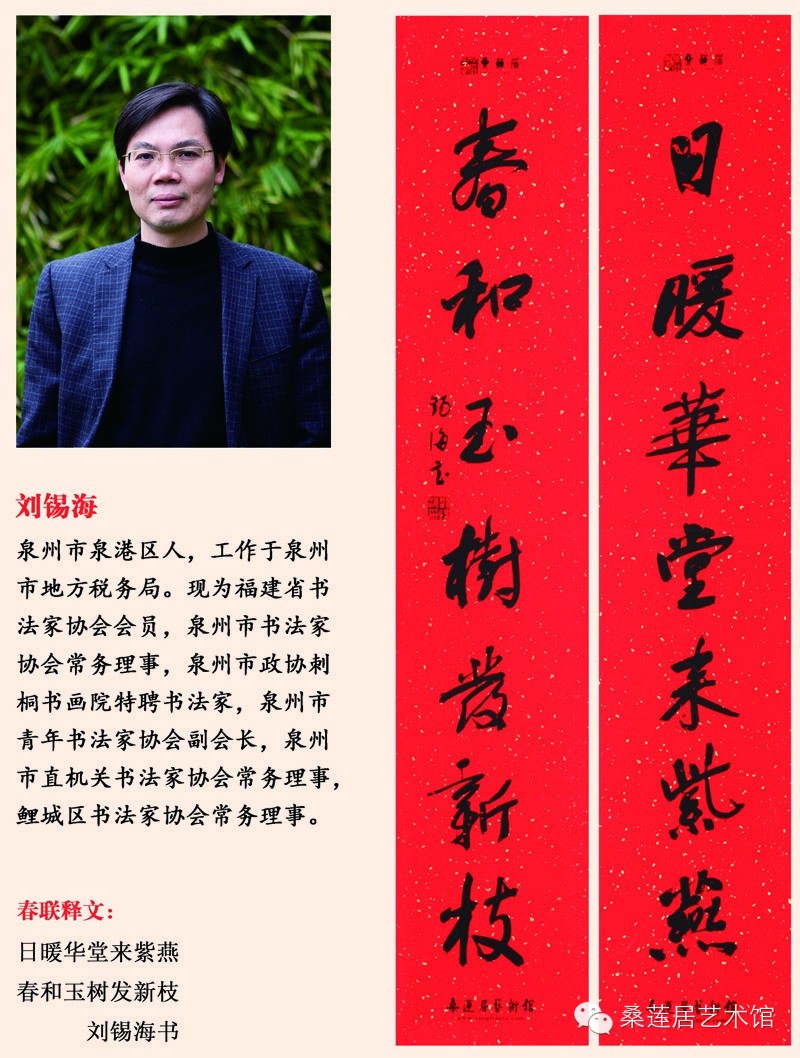 刘锡海
泉州市泉港区人，工作于泉州
市地方税务局。现为福建省书
法家协会会员，泉州市书法家
协会常务理事，泉州市政协刺
桐书画院特聘书法家，泉州市
青年书法家协会副会长，泉州
市直机关书法家协会常务理事，
鲤城区书法家协会常务理事。
春联释文：
日暖华堂来紫燕
春和玉树发新枝
刘锡海书
桑莲居
日暖華堂来紫燕
桑莲居
春和玉樹發新枝
錫海書
桑蓮居藝術館
桑莲居艺术馆